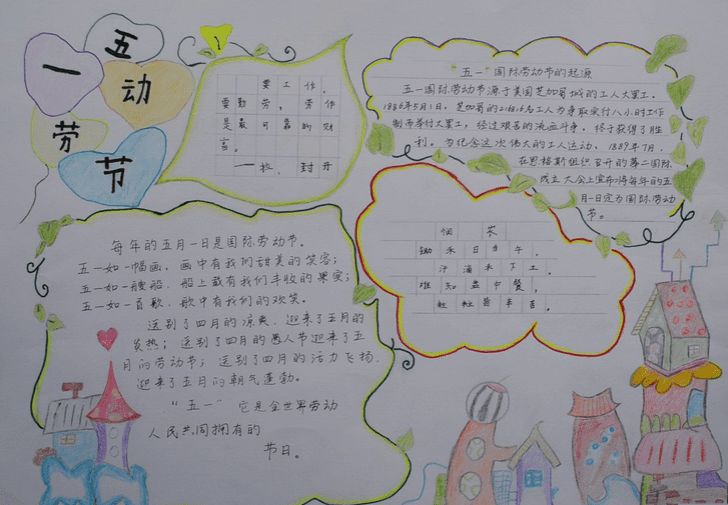 五
一
动
劳
节
要工作，
要勤劳：劳作
是最可靠的财
富。
——拉·封丹
“五一”国际劳动节的起源
五一国际劳动节源于美国芝加哥城的工人大罢工。
1886年5月1日，芝加哥的21.6万名工人为争取实行八小时工作
制而举行大罢工，经过艰苦的流血斗争，终于获得了胜
利。为纪念这次伟大的工人运动，1889年7月，
在恩格斯组织召开的第二国际
成立大会上宣布将每年的五
月一日定为国际劳动
节。
悯农
锄禾日当午，
汗滴禾下土。
谁知盘中餐，
粒粒皆辛苦。
每年的五月一日是国际劳动节。
五一如一幅画，画中有我们甜美的笑容；
五一如一艘船，船上载有我们丰收的果实；
五一如一首歌，歌中有我们的欢笑。
送别了四月的凉爽，迎来了五月的
炎热；送别了四月的愚人节迎来了五
月的劳动节；送别了四月的活力飞扬，
迎来了五月的朝气蓬勃。
“五一”它是全世界劳动
人民共同拥有的
节日。